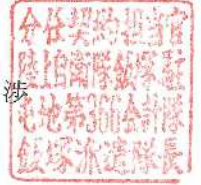 分任契約担当官
陸上自衛隊飯塚駐
屯地第 会計隊
飯塚派遣隊長
渉